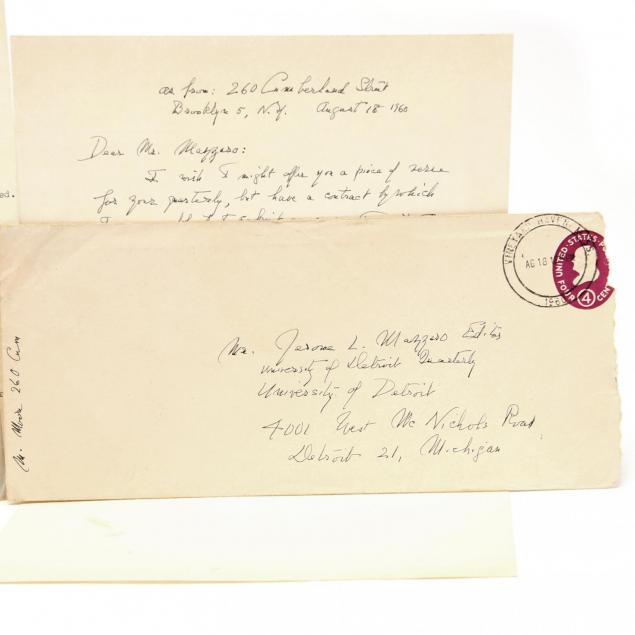 as from: 260 Cumberland Street
Brooklyn 5, N.Y. August 18 1960
Dear Mr. Mazzaro:
I wish I might offer you a piece of verse
for your quarterly, but have a contract by which
ed.
VINEYARD HAVEN
AG 18
1960
UNITED·STATES·PO
FOUR 4 CEN
Mr. Jerome L. Mazzaro Editor
University of Detroit Quarterly
University of Detroit
4001 West Mc Nichols Road
Detroit 21, Michigan
M. Moore 260 Cum